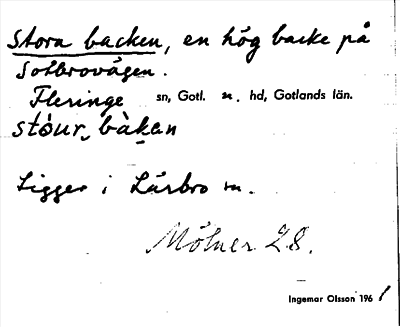 Stora backen, en hög backe på
Sotbrovägen.
Fleringe sn, Gotl. n. hd, Gotlands län.
stóur, bàkan
Ligger i Lärbro sn.
Mölner 28.
Ingemar Olsson 1961